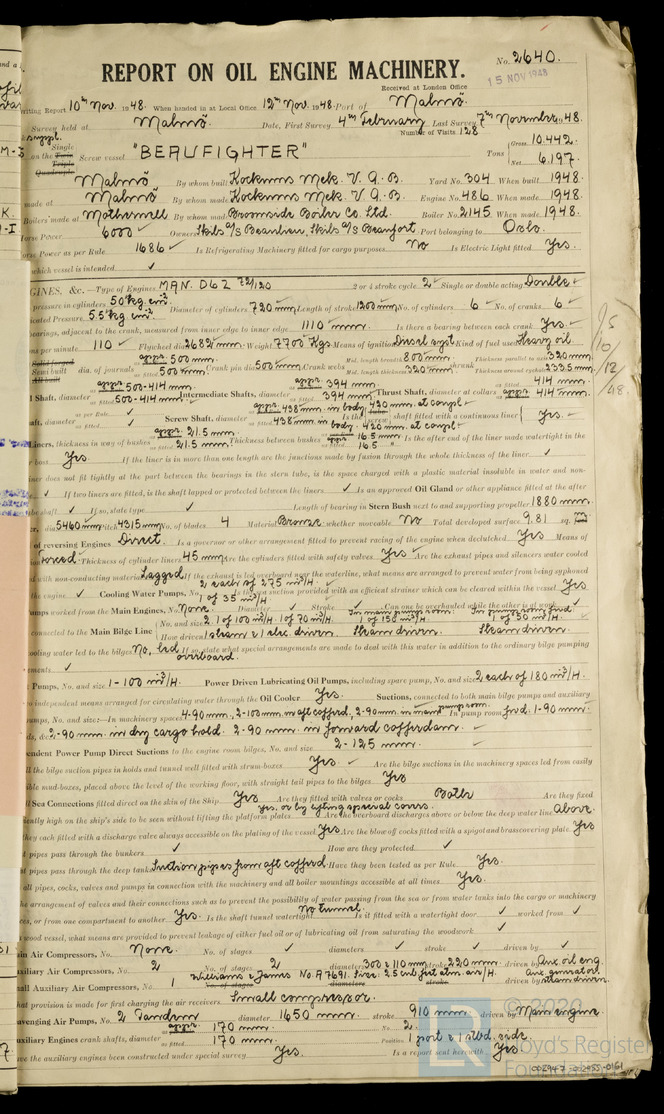 No. 2640.
REPORT ON OIL ENGINE MACHINERY.
Received at London Office 15 NOV 1948
Writing Report 10th Nov. 1948. When handed in at Local Office 12th Nov. 1948. Port of Malmö.
Survey held at Malmö Date, First Survey 4th February Last Survey 7th November 1948.
Number of Visits 128
Single
on the Twin Triple Quadruple Screw vessel "BEAUFIGHTER" Tons Gross 10.442 Net 6.197
Malmö By whom built Kockums Mek. V. A. B. Yard No. 304 When built 1948.
made at Malmö By whom made Kockums Mek. V. A. B. Engine No. 486 When made 1948.
Boilers made at Motherwell By whom made Boiler Co. Ltd. Boiler No. 2145 When made 1948.
Horse Power 6000 Owners Skibs A/S Beaulieu, Skibs A/S Beaufort Port belonging to Oslo.
Horse Power as per Rule 1686 Is Refrigerating Machinery fitted for cargo purposes No Is Electric Light fitted Yes.
which vessel is intended ✓
ENGINES, &c. Type of Engines MAN. D6Z 72/120 2 or 4 stroke cycle 2 Single or double acting Double
pressure in cylinders 50 kg. cm² Diameter of cylinders 720 mm Length of stroke 1200 mm No. of cylinders 6 No. of cranks 6
Indicated Pressure 5.5 kg. cm²
bearings, adjacent to the crank, measured from inner edge to inner edge 1110 mm. Is there a bearing between each crank Yes.
per minute 110 Flywheel dia. 2682 mm. Weight 7700 Kgs. Means of ignition Diesel syst. Kind of fuel used Heavy oil
Solid forged Semi built All built dia. of journals appr. 500 mm. as fitted 500 mm. Crank pin dia. 500 mm. Crank webs Mid. length breadth 800 mm. Mid. length thickness 320 mm. shrunk Thickness parallel to axis 320 mm. Thickness around eyehole 232.5 mm.
Shaft, diameter appr. 500-414 mm. as fitted 500-414 mm. Intermediate Shafts, diameter appr. 394 mm. as fitted 394 mm. Thrust Shaft, diameter at collars appr. 414 mm. as fitted 414 mm.
Shaft, diameter as per Rule ✓ as fitted ✓ Screw Shaft, diameter appr. 438 mm. in body, 420 mm. at coupl. as fitted 438 mm in body. 420 mm. at coupl. Is the shaft fitted with a continuous liner Yes.
Liners, thickness in way of bushes appr. 21.5 mm. as fitted 21.5 mm. Thickness between bushes appr. 16.5 mm. as fitted 16.5 " Is the after end of the liner made watertight in the
boss Yes. If the liner is in more than one length are the junctions made by fusion through the whole thickness of the liner ✓
liner does not fit tightly at the part between the bearings in the stern tube, is the space charged with a plastic material insoluble in water and non-
✓ If two liners are fitted, is the shaft lapped or protected between the liners ✓ Is an approved Oil Gland or other appliance fitted at the after
the shaft ✓ If so, state type ✓ Length of bearing in Stern Bush next to and supporting propeller 1880 mm.
dia. 5460 mm Pitch 4315 mm No. of blades 4 Material Bronze whether moveable No Total developed surface 9.81 sq.
of reversing Engines Direct. Is a governor or other arrangement fitted to prevent racing of the engine when declutched Yes Means of
Forced Thickness of cylinder liners 45 mm Are the cylinders fitted with safety valves Yes Are the exhaust pipes and silencers water cooled
with non-conducting material Lagged If the exhaust is led overboard near the waterline, what means are arranged to prevent water from being syphoned
the engine ✓ Cooling Water Pumps, No. 2 each of 275 m³/H. 1 of 35 m³/H Is the sea suction provided with an efficient strainer which can be cleared within the vessel Yes.
Pumps worked from the Main Engines, No. None. Diameter ✓ Stroke ✓ Can one be overhauled while the other is at work ✓
connected to the Main Bilge Line No. and size 2, 1 of 100 m³/H. 1 of 70 m³/H In main pump room. 1 of 150 m³/H In pump room fwd 1 of 50 m³/H.
How driven 1 steam & 1 elec. driven. Steam driven. Steam driven.
cooling water led to the bilges No, led overboard. If so, state what special arrangements are made to deal with this water in addition to the ordinary bilge pumping
arrangements ✓
Pumps, No. and size 1-100 m³/H. Power Driven Lubricating Oil Pumps, including spare pump, No. and size 2 each of 180 m³/H.
independent means arranged for circulating water through the Oil Cooler Yes. Suctions, connected to both main bilge pumps and auxiliary
pumps, No. and size:—In machinery spaces 4-90 mm, 2-100 mm. in aft cofferd., 2-90 mm. in main pump room. In pump room fwd. 1-90 mm.
&c. 2-90 mm. in dry cargo hold. 2-90 mm. in forward cofferdam.
Independent Power Pump Direct Suctions to the engine room bilges, No. and size 2-125 mm.
all the bilge suction pipes in holds and tunnel well fitted with strum-boxes Yes Are the bilge suctions in the machinery spaces led from easily
accessible mud-boxes, placed above the level of the working floor, with straight tail pipes to the bilges Yes
all Sea Connections fitted direct on the skin of the Ship Yes Are they fitted with valves or cocks Both Are they fixed
sufficiently high on the ship's side to be seen without lifting the platform plates yes. or by lifting special covers. Are the overboard discharges above or below the deep water line Above.
they each fitted with a discharge valve always accessible on the plating of the vessel Yes Are the blow off cocks fitted with a spigot and brass covering plate Yes
pipes pass through the bunkers ✓ How are they protected ✓
pipes pass through the deep tanks Suction pipes from aft cofferd. Have they been tested as per Rule Yes.
all pipes, cocks, valves and pumps in connection with the machinery and all boiler mountings accessible at all times Yes.
the arrangement of valves and their connections such as to prevent the possibility of water passing from the sea or from water tanks into the cargo or machinery
spaces, or from one compartment to another Yes. Is the shaft tunnel watertight No tunnel. Is it fitted with a watertight door ✓ worked from ✓
a wood vessel, what means are provided to prevent leakage of either fuel oil or of lubricating oil from saturating the woodwork ✓
Main Air Compressors, No. None. No. of stages ✓ diameters ✓ stroke ✓ driven by ✓
Auxiliary Air Compressors, No. 2 No. of stages 2 diameters 300 & 110 mm stroke 220 mm. driven by Aux. oil eng.
Small Auxiliary Air Compressors, No. 1 Williams & James No. A7691. Size: 2.5 cub. feet atm. air/H. Aux. generator driven by steam driven.
What provision is made for first charging the air receivers Small compressor.
Scavenging Air Pumps, No. 2 Tandem diameter 1650 mm. stroke 910 mm. driven by Main engine.
Auxiliary Engines crank shafts, diameter appr. 170 mm. as fitted 170 mm. No. 2. Position 1 port & 1 stbd. side.
Have the auxiliary engines been constructed under special survey Yes. Is a report sent herewith Yes.
© 2020
Lloyd's Register Foundation
LR
002947-002955-0161